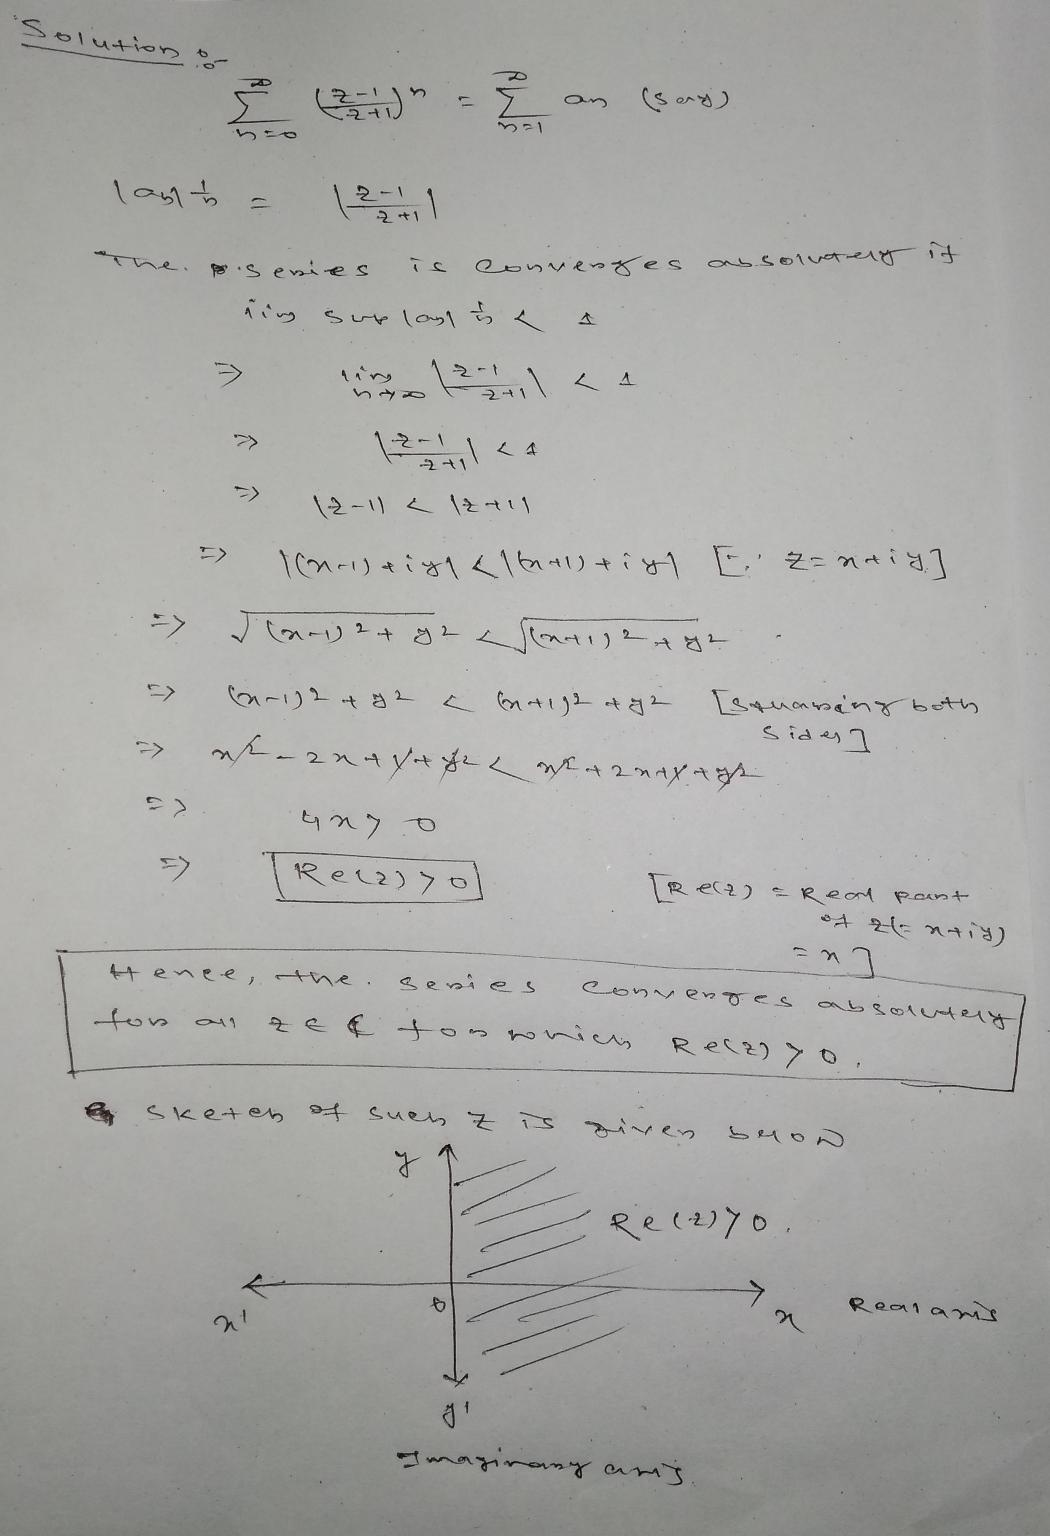 Solution :-
∞ ∑ n=0 ((z-1)/(z+1))^n = ∞ ∑ n=1 an (say)
|an|^(1/n) = |(z-1)/(z+1)|
The series is converges absolutely if
lim sup |an|^(1/n) < 1
=> lim n→∞ |(z-1)/(z+1)| < 1
=> |(z-1)/(z+1)| < 1
=> |z-1| < |z+1|
=> |(x-1)+iy| < |(x+1)+iy| [∵ z=x+iy]
=> √((x-1)²+y²) < √((x+1)²+y²)
=> (x-1)²+y² < (x+1)²+y² [Squaring both
sides]
=> x²-2x+1+y² < x²+2x+1+y²
=> 4x > 0
=> Re(z) > 0
[Re(z) = Real part
of z(=x+iy)
=x]
Hence, the series converges absolutely
for all z ∈ ℂ for which Re(z) > 0.
sketch of such z is given below
y
Re(z) > 0.
x' 0 x Real axis
y'
Imaginary axis